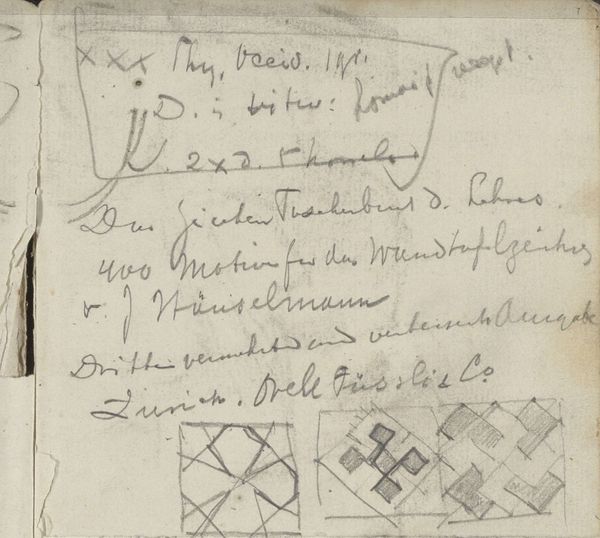 xxx
D. i
2 x d. 5
Das Zeichen Taschenbuch d. Lehrers.
400 Motive für das Wandtafelzeichnen
v. J Häuselmann
Dritte vermehrte und verbesserte Ausgabe
Zürich. Orell Füssli & Co